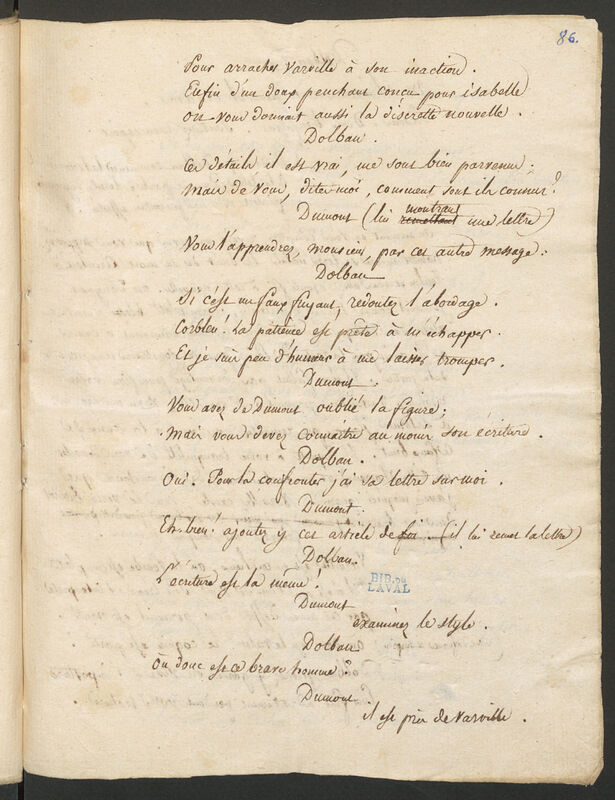 86.
Pour arracher Varville à son inaction.
Enfin d'un doux penchant conçu pour isabelle
on vous donnait aussi la discrette nouvelle.
Dolban.
Ces détails il est vrai, me sont bien parvenus;
Mais de vous, dites-moi, comment sont ils connus?
montrant
Dumont (lui remettant une lettre)
Vous l'apprendrez, monsieur, par cet autre message:
Dolban
Si c'est un faux fuyant, redoutez l'abordage.
Corbleu! La patience est prête à m'échapper.
Et je suis peu d'humeur à me laisser tromper.
Dumont.
Vous avez de Dumont oublié la figure;
Mais vous devez connaître au moins son écriture.
Dolban.
Oui. Pour la confronter j'ai sa lettre sur moi.
Dumont.
Eh bien! ajoutez y cet article de foi. (il lui remet la lettre)
Dolban.
L'écriture est la même!
BIB. DE
LAVAL
Dumont
examinez le style.
Dolban
Où donc est ce brave homme?
Dumont.
il est près de Varville.